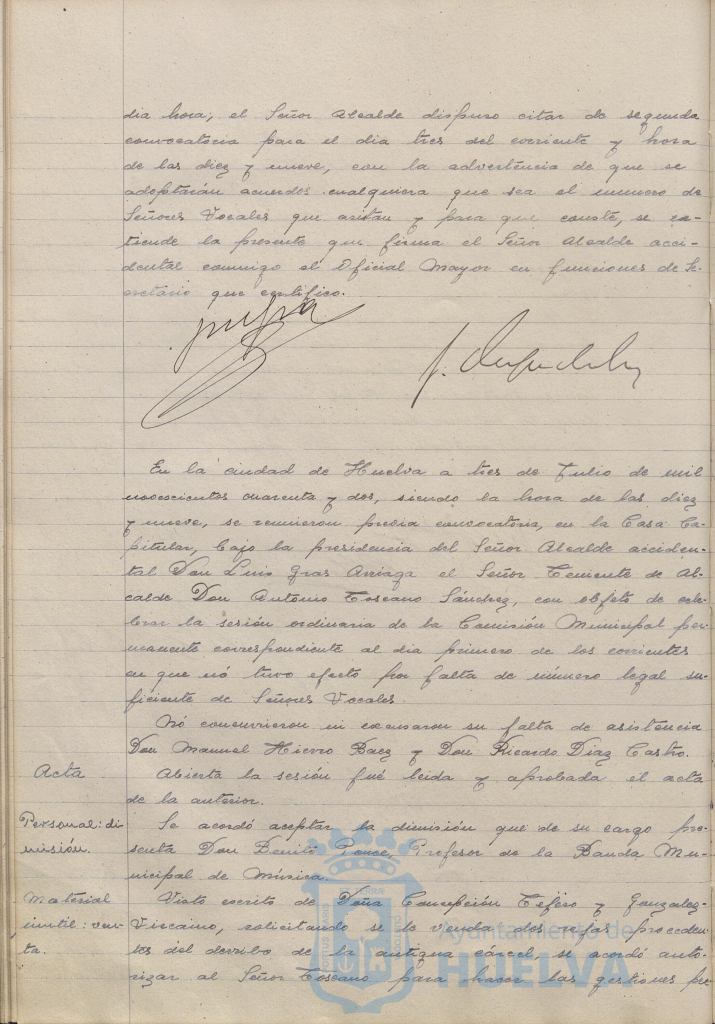 dia hora; el Señor Alcalde dispuso citar de segunda
convocatoria para el dia tres del corriente y hora
de las diez y nueve, con la advertencia de que se
adoptarán acuerdos cualquiera que sea el numero de
Señores Vocales que asistan y para que conste, se ex-
tiende la presente que firma el Señor Alcalde acci-
dental conmigo el Oficial Mayor en funciones de Se-
cretario que certifico.
En la ciudad de Huelva a tres de Julio de mil
novecientos cuarenta y dos, siendo la hora de las diez
y nueve, se reunieron previa convocatoria, en la Casa Ca-
pitular, bajo la presidencia del Señor Alcalde acciden-
tal Don Luis Gras Arriaga el Señor Teniente de Al-
calde Don Antonio Toscano Sánchez, con objeto de cele-
brar la sesión ordinaria de la Comisión Municipal per-
manente correspondiente al dia primero de los corrientes
en que nó tuvo efecto por falta de número legal su-
ficiente de Señores Vocales.
Nó concurrieron ni excusaron su falta de asistencia
Don Manuel Hierro Baez y Don Ricardo Diaz Castro.
Acta
Abierta la sesión fué leida y aprobada el acta
de la anterior.
Personal: di
misión.
Se acordó aceptar la dimisión que de su cargo pre-
senta Don Benito Ponce, Profesor de la Banda Mu-
nicipal de Música.
Material
inutil: ven-
ta.
Visto escrito de Doña Concepción Tejero y Gonzalez-
Vizcaino, solicitando se le venda dos rejas proceden-
tes del derribo de la antigua cárcel se acordó auto-
rizar al Señor Toscano para hacer las gestiones per
Ayuntamiento de
HUELVA